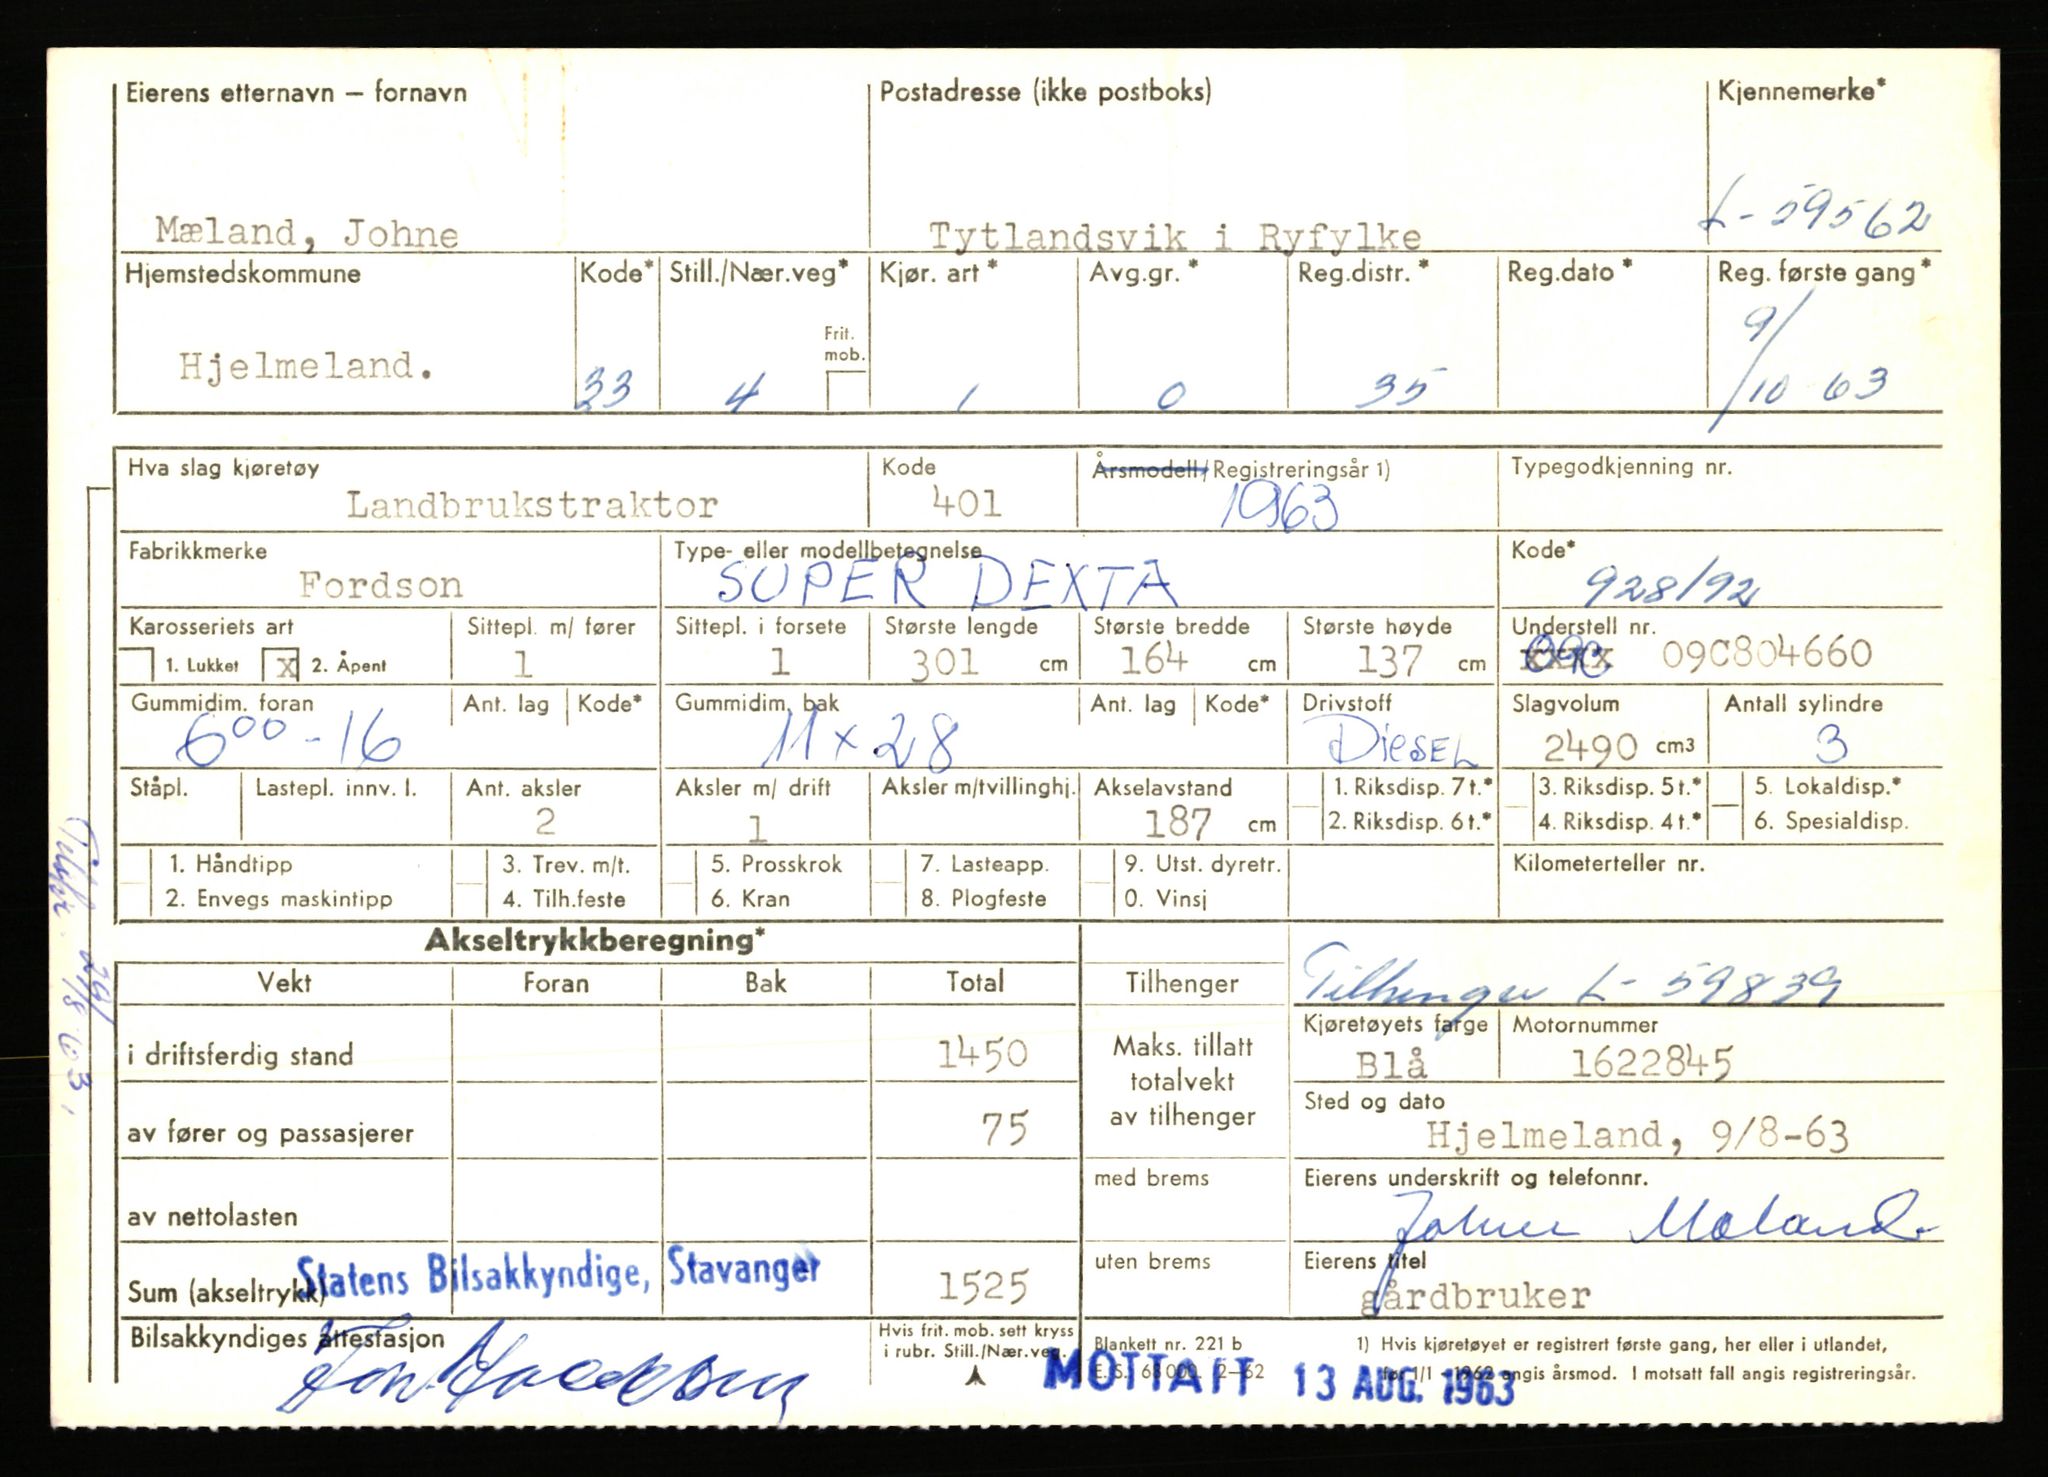 Eierens etternavn – fornavn Postadresse (ikke postboks) Kjennemerke*
Mæland, Johne Tytlandsvik i Ryfylke L-59562
Hjemstedskommune Kode* Still./Nær.veg* Kjør. art * Avg.gr.* Reg.distr.* Reg.dato* Reg. første gang*
Frit. mob.
Hjelmeland. 33 4 1 0 35 9/10 63
Hva slag kjøretøy Kode Årsmodell/Registreringsår 1) Typegodkjenning nr.
Landbrukstraktor 401 1963
Fabrikkmerke Type- eller modellbetegnelse Kode*
Fordson SUPER DEXTA 928/92
Karosseriets art Sittepl. m/ fører Sittepl. i forsete Største lengde Største bredde Største høyde Understell nr.
1. Lukket x 2. Åpent 1 1 301 cm 164 cm 137 cm 09C804660
Gummidim. foran Ant. lag Kode* Gummidim. bak Ant. lag Kode* Drivstoff Slagvolum Antall sylindre
6⁰⁰-16 11x28 Diesel 2490 cm3 3
Ståpl. Lastepl. innv. l. Ant. aksler Aksler m/ drift Aksler m/tvillinghj. Akselavstand 1. Riksdisp. 7 t.* 3. Riksdisp. 5 t.* 5. Lokaldisp.*
2 1 187 cm 2. Riksdisp. 6 t.* 4. Riksdisp. 4 t.* 6. Spesialdisp.
1. Håndtipp 3. Trev. m/t. 5. Prosskrok 7. Lasteapp. 9. Utst. dyretr. Kilometerteller nr.
2. Envegs maskintipp 4. Tilh.feste 6. Kran 8. Plogfeste 0. Vinsj
Akseltrykkberegning*
Vekt Foran Bak Total Tilhenger Tilhenger L-59839
Kjøretøyets farge Motornummer
i driftsferdig stand 1450 Maks. tillatt totalvekt av tilhenger Blå 1622845
Sted og dato
av fører og passasjerer 75 Hjelmeland, 9/8-63
med brems Eierens underskrift og telefonnr.
av nettolasten Johne Mæland.
uten brems Eierens titel
Statens Bilsakkyndige, Stavanger
Sum (akseltrykk) 1525 gårdbruker
Bilsakkyndiges attestasjon Hvis frit. mob. sett kryss i rubr. Still./Nær.veg. Blankett nr. 221 b 1) Hvis kjøretøyet er registrert første gang, her eller i utlandet,
E.S. 68 000. 2-62 før 1/1 - 1962 angis årsmod. I motsatt fall angis registreringsår.
MOTTATT 13 AUG. 1963
29/8 63.